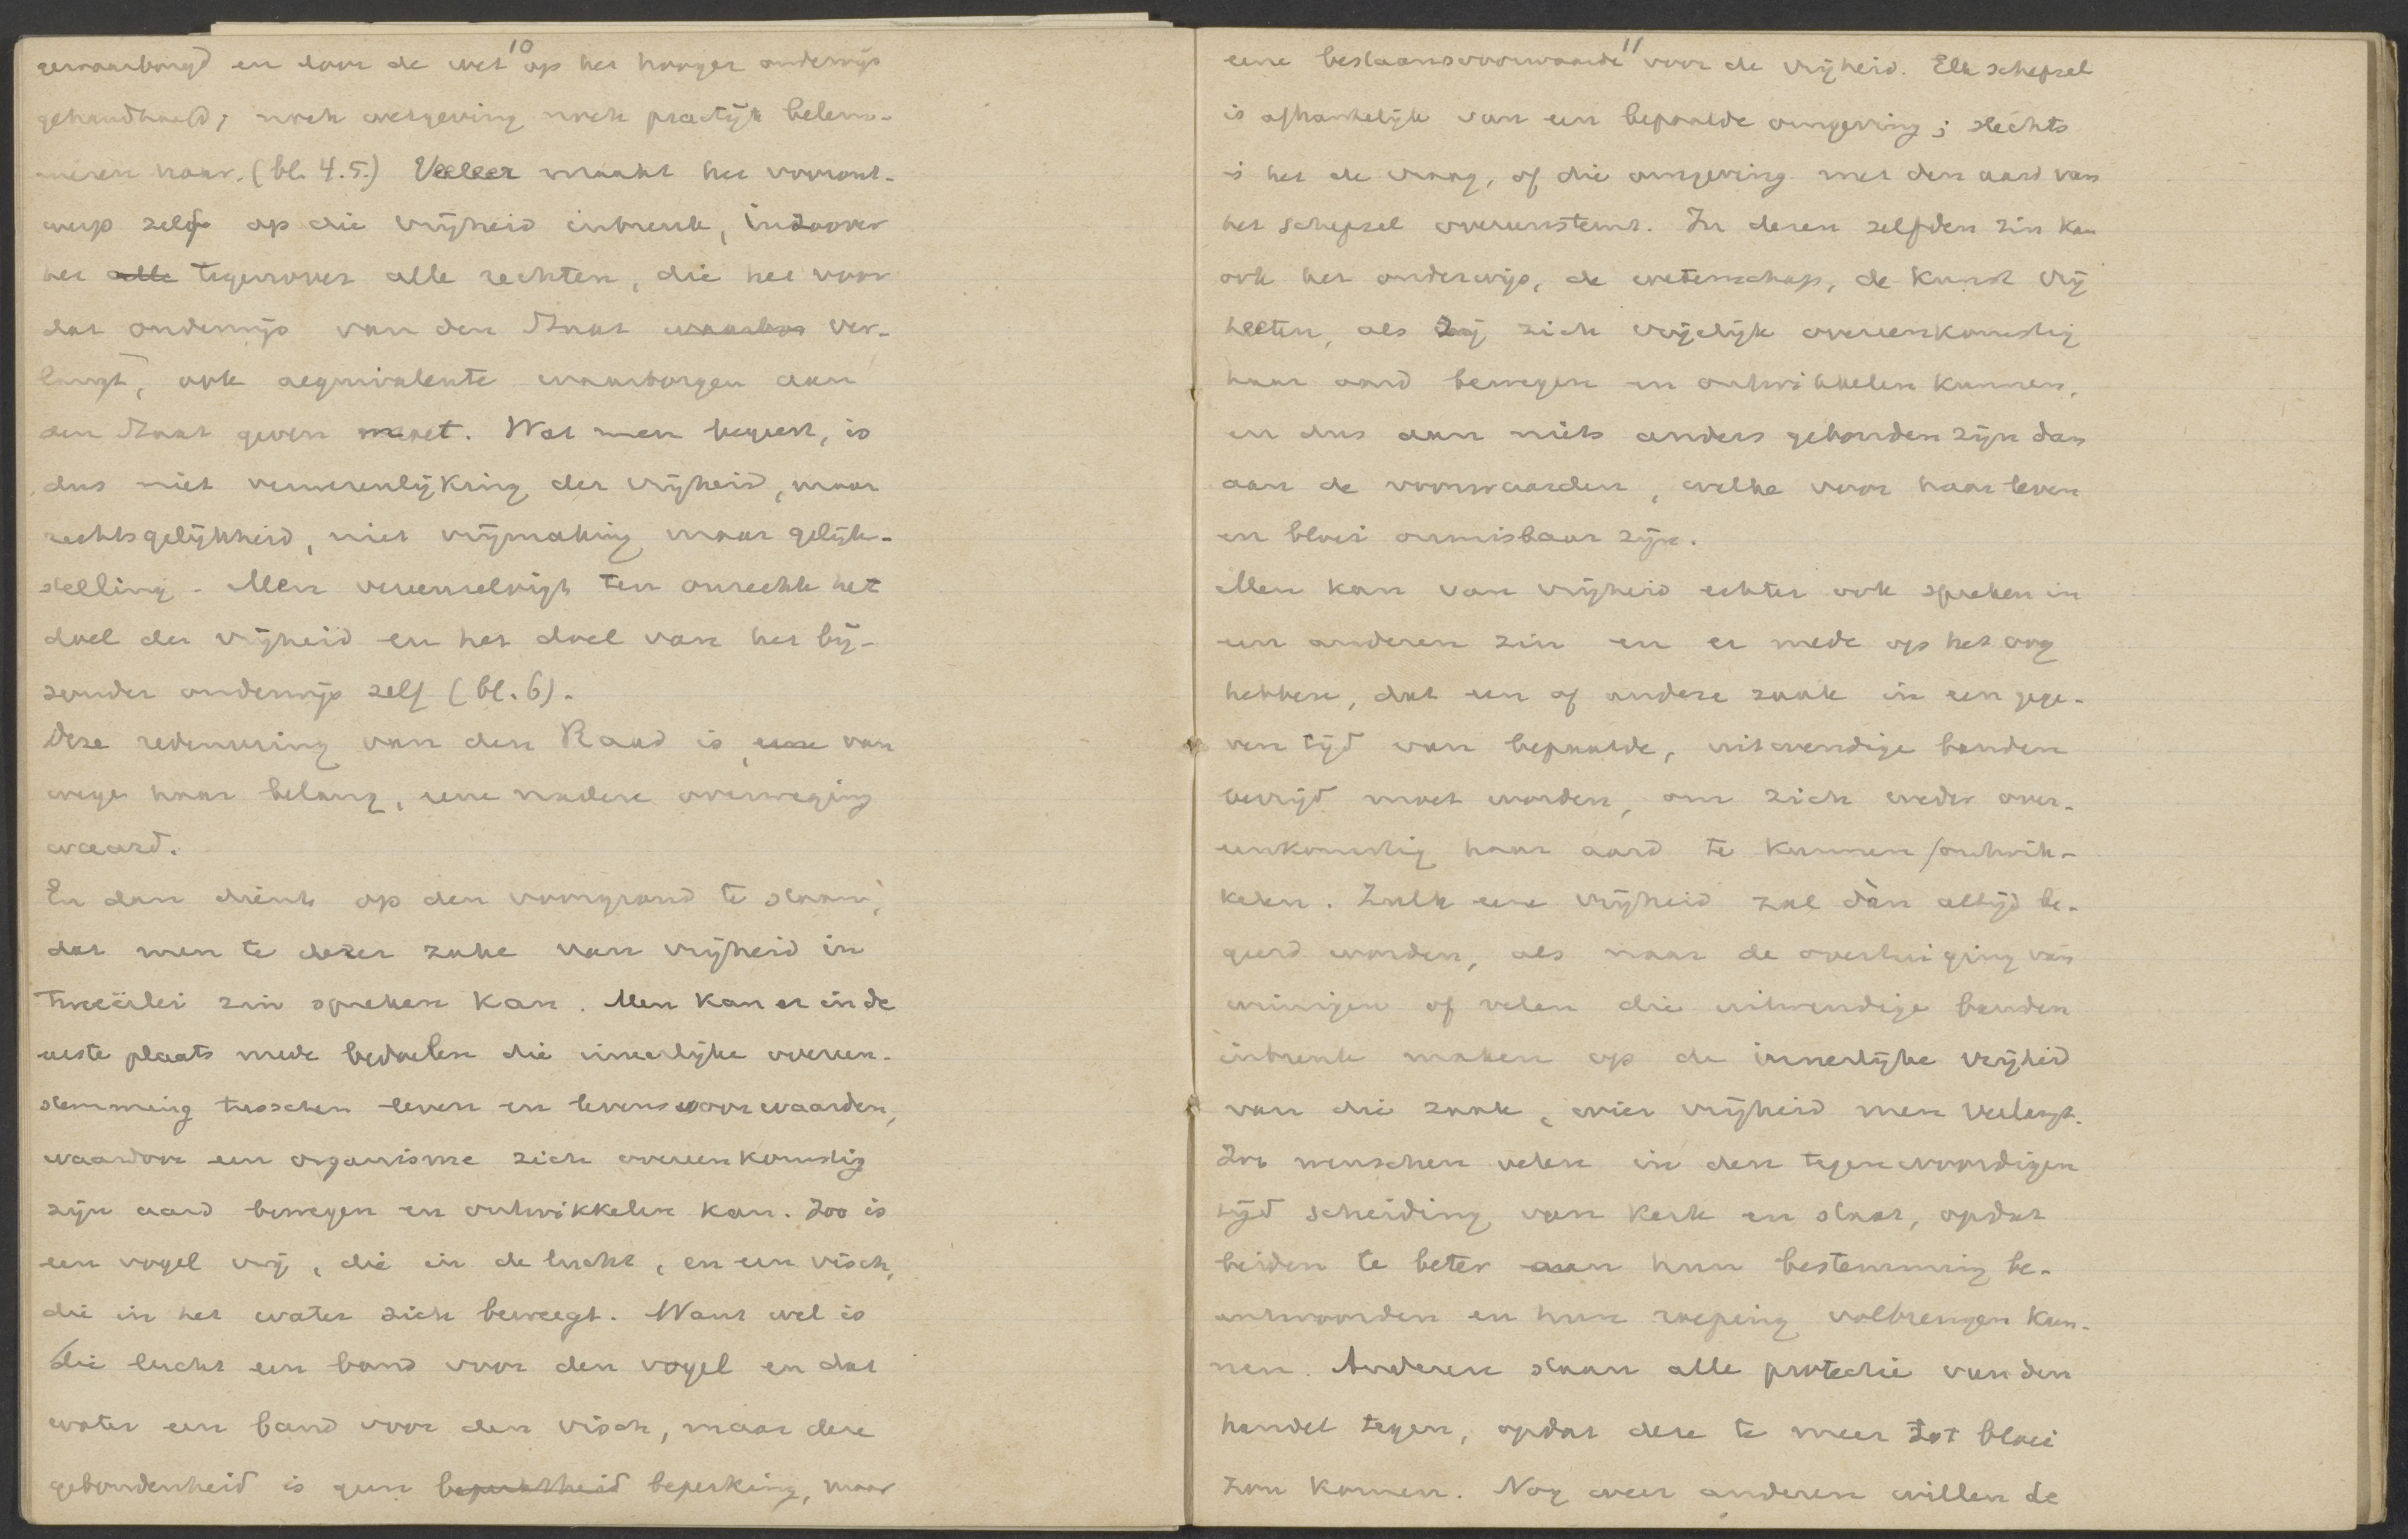 10
gewaarborgd en door de wet op het hooger onderwijs
gehandhaafd; noch wetgeving noch practijk belem-
meren haar. (bl. 4.5.) Veeleer maakt het vooront-
werp zelf op die vrijheid inbreuk, indoover
het alle tegenover alle rechten, die het voor
dat onderwijs van den Staat waarbor ver-
langt, ook aequivalente waarborgen aan
den Staat geven moet. Wat men begeert, is
dus niet verwerenlijking der vrijheid, maar
rechtsgelijkheid, niet vrijmaking maar gelijk-
stelling. Men vereenzelvigt ten onrechte het
doel der vrijheid en het doel van het bij-
zonder onderwijs zelf (bl. 6).
Deze redeneering van den Raad is, eene van
wege haar belang, eene nadere overweging
waard.
En dan dient op den voorgrond te staan,
dat men te dezer zake van vrijheid in
tweeërlei zin spreken kan. Men kan er in de
eerste plaats mede bedoelen die innerlijke overeen-
stemming tusschen leven en levensvoorwaarden,
waardoor een organisme zich overeenkomstig
zijn aard bewegen en ontwikkelen kan. Zoo is
een vogel vrij, die in de lucht, en een visch,
die in het water zich beweegt. Want wel is
die lucht een band voor den vogel en dat
water een band voor den visch, maar deze
gebondenheid is geen beperktheid beperking, maar
11
eene bestaansvoorwaarde voor de vrijheid. Elk schepsel
is afhankelijk van een bepaalde omgeving; slechts
is het de vraag, of die omgeving met den aard van
het schepsel overeenstemt. In dezen zelfden zin kan
ook het onderwijs, de wetenschap, de kunst vrij
heeten, als zij zich vrijelijk overeenkomstig
haar aard bewegen en ontwikkelen kunnen,
en dus aan niets anders gebonden zijn dan
aan de voorwaarden, welke voor haar leven
en bloei onmisbaar zijn.
Men kan van vrijheid echter ook spreken in
een anderen zin en er mede op het oog
hebben, dat een of andere zaak in een gege-
ven tijd van bepaalde, uitwendige banden
bevrijd moet worden, om zich weder over-
eenkomstig haar aard te kunnen ontwik-
kelen. Zulk eene vrijheid zal dàn altijd be-
geerd worden, als naar de overtuiging van
weinigen of velen die uitwendige banden
inbreuk maken op de innerlijke vrijheid
van die zaak, wier vrijheid men verlangt.
Zoo wenschen velen in den tegenwoordigen
tijd scheiding van kerk en staat, opdat
beiden te beter aan hun bestemming be-
antwoorden en hun roeping volbrengen kun-
nen. Anderen staan alle protectie van den
handel tegen, opdat deze te meer tot bloei
zou komen. Nog weer anderen willen de